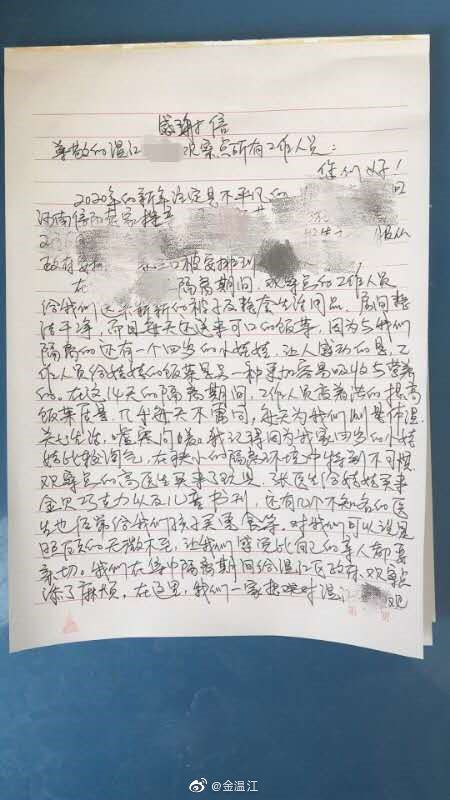 感谢信
尊敬的温江 观察点所有工作人员：
您们好！
2020年的新年注定是不平凡的 日
河南信阳
服从
政府安排 一家三口被安排到
在 隔离期间，观察点的工作人员
给我们送来新新的被子及整套生活用品，房间整
洁干净，而且每天还送来可口的饭菜，因为与我们
隔离的还有一个四岁的小娃娃，让人感动的是，工
作人员给娃娃的饭菜是另一种更加容易吸收与营养
的。在这14天的隔离期间，工作人员变着法的提高
饭菜质量，几乎每天不雷同，每天为我们测量体温
关心生活，嘘寒问暖。我记得因为我家四岁的小娃
娃比较淘气，在狭小的隔离环境中特别不习惯
观察点的高医生买来了玩具，张医生给娃娃买来
金贝巧克力以及儿童书刊，还有几个不知名的医
生也经常给我们孩子买零食等，对我们可以说是
照顾的无微不至，让我们感觉比自己的亲人都要
亲切，我们在集中隔离期间给温江区政府、观察点
添了麻烦，在这里，我们一家挚诚对温江 观
@金温江